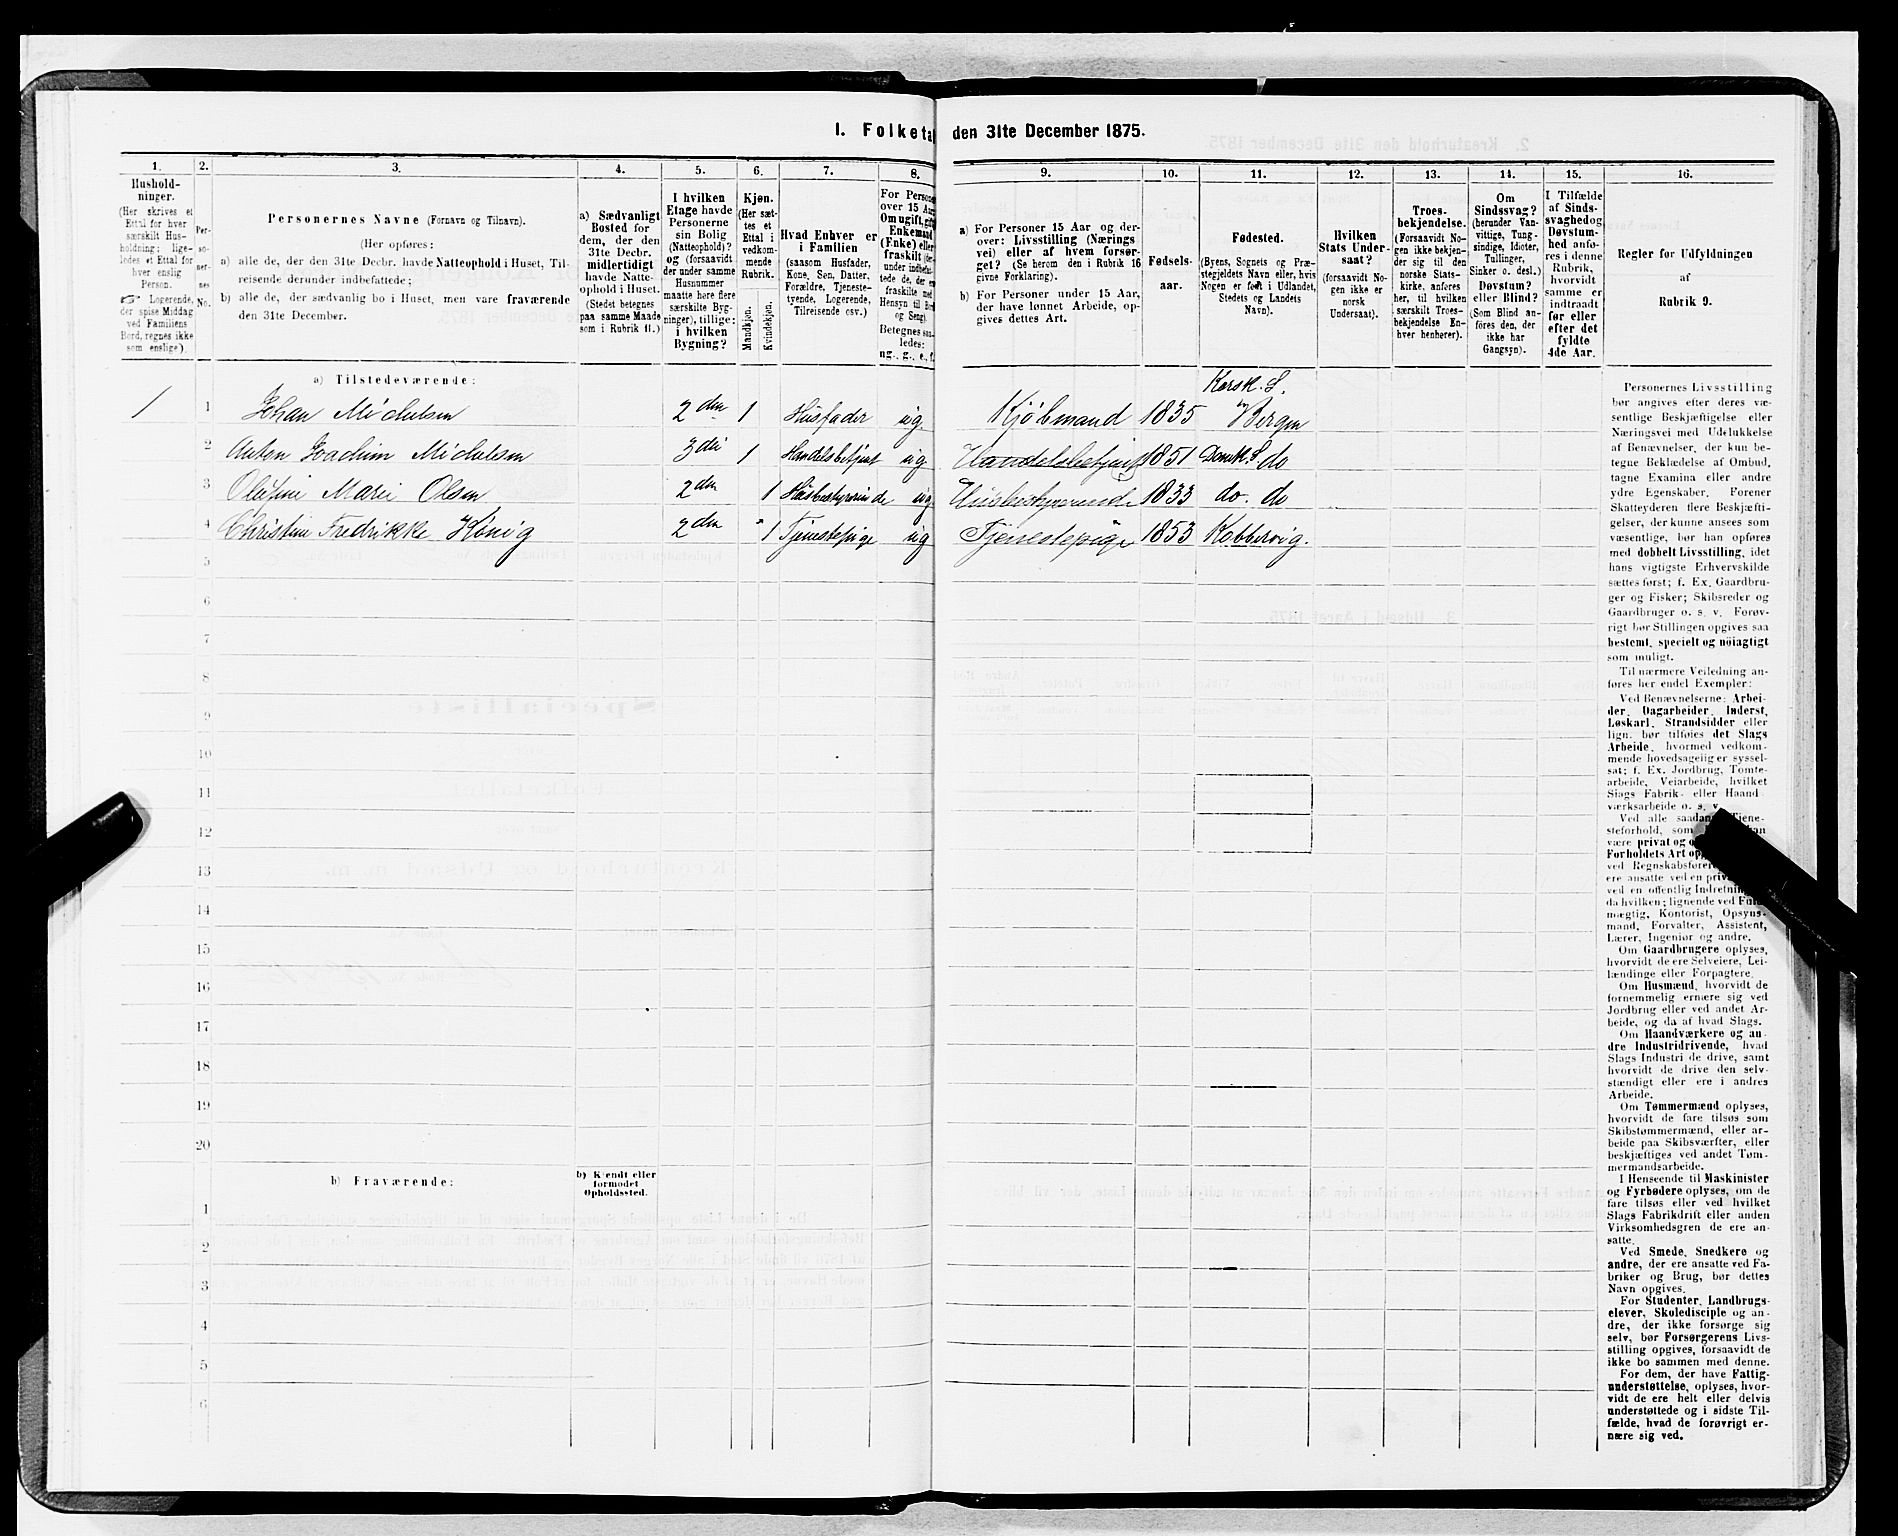 1. Folketal den 31te December 1875.
1. 2. 3. 4. 5. 6. 7. 8. 9. 10. 11. 12. 13. 14. 15. 16.
Hushold-
ninger.
(Her skrives et
Ettal for hver
særskilt Hus-
holdning; lige-
ledes et Ettal for
hver enslig
Person.
☞ Logerende,
der spise Middag
ved Familiens
Bord, regnes ikke
som enslige).
Per-
so-
ner-
nes
No.
Personernes Navne (Fornavn og Tilnavn).
(Her opføres:
a) alle de, der den 31te Decbr. havde Natteophold i Huset, Til-
reisende derunder indbefattede;
b) alle de, der sædvanlig bo i Huset, men vare fraværende
den 31te December.
a) Sædvanligt
Bosted for
dem, der den
31te Decbr.
midlertidigt
havde Natte-
ophold i Huset.
(Stedet betegnes
paa samme Maade
som i Rubrik 11.)
I hvilken
Etage havde
Personerne
sin Bolig
(Natteophold)?
og (forsaavidt
der under samme
Husnummer
maatte høre flere
særskilte Byg-
ninger), tillige:
i hvilken
Bygning?
Kjøn.
(Her sæt-
tes et
Ettal i
vedkom-
mende
Rubrik.
Mandkjøn.
Kvindekjøn.
Hvad Enhver er
i Familien
(saasom Husfader,
Kone, Søn, Datter,
Forældre, Tjeneste-
tyende, Logerende,
Tilreisende osv.)
For Persone
over 15 Aar
Om ugift, gift
Enkemand
(Enke) eller
fraskilt
og Seng).
Betegnes saa-
ledes:
ug., g., e., f.
a) For Personer 15 Aar og der-
over: Livsstilling (Nærings
vei) eller af hvem forsør-
get? (Se herom den i Rubrik 16
givne Forklaring).
b) For Personer under 15 Aar,
der have lønnet Arbeide, op-
gives dettes Art.
Fødsels-
aar.
Fødested.
(Byens, Sognets og Præ-
stegjeldets Navn eller, hvis
Nogen er født i Udlandet,
Stedets og Landets
Navn).
Hvilken
Stats Under-
saat?
(forsaavidt No-
gen ikke er
norsk
Undersaat).
Troes-
bekjendelse.
(Forsaavidt No-
gen ikke bekjen-
der sig til den
norske Stats-
kirke, anføres
her, til hvilken
særskilt Troes-
bekjendelse En-
hver henhører).
Om
Sindssvag?
(herunder Van-
vittige, Tung-
sindige, Idioter,
Tullinger,
Sinker o. desl.)
Døvstum?
eller Blind?
(Som Blind an-
føres den, der
ikke har
Gangsyn).
I Tilfælde
af Sinds-
svaghed og
Døvstum-
hed anfø-
res i denne
Rubrik,
hvorvidt
samme er
indtraadt
før eller
efter det
fyldte
4de Aar.
Regler for Udfyldningen
af
Rubrik 9.
a) Tilstedeværende:
Korsk. S.
1 1 Johan Michelsen 2den 1 Husfader ug. Kjøbmand 1835 Bergen
2 Anton Joachim Michelsen 3die 1 Handelsbetjent ug Handelsbetjent 1851 Domk. S. do
3 Olufine Marie Olsen 2den 1 Husbestyrerinde ug Husbestyrerinde 1833 do. do
4 Christine Fredrikke König 2den " 1 Tjenestepige ug Tjenestepige 1853 Kobbervig.
5
6
7
8
9
10
11
12
13
14
15
16
17
18
19
20
b) Fraværende:
b) Kjendt eller
formodet
Opholdssted.
1
2
3
4
5
6
Personernes Livsstilling
bør angives efter deres væ-
sentlige Beskjæftigelse eller
Næringsvei med Udelukkelse
af Benævnelser, der kun be-
tegne Beklædelse af Ombud,
tagne Examina eller andre
ydre Egenskaber. Forener
Skatteyderen flere Beskjæfti-
gelser, der kunne ansees som
væsentlige, bør han opføres
med dobbelt Livsstilling, idet
hans vigtigste Erhvervskilde
sættes først; f. Ex. Gaardbru-
ger og Fisker; Skibsreder og
Gaardbruger o. s. v. Forøv-
rigt bør Stillingen opgives saa
bestemt, specielt og nöiagtigt
som muligt.
Til nærmere Veiledning an-
føres her endel Exempler:
Ved Benævnelserne: Arbei-
der, Dagarbeider, Inderst,
Løskarl, Strandsidder eller
lign. bør tilføies det Slags
Arbeide, hvormed vedkom-
mende hovedsagelig er syssel-
sat; f. Ex. Jordbrug, Tomte-
arbeide, Veiarbeide, hvilket
Slags Fabrik- eller Haand-
værksarbeide o. s. v.
Ved alle saadanne Tjene-
steforhold, som
være privat og
Forholdets Art
ved Regnskabsførere
ere ansatte ved en
ved en offentlig Indretning
da hvilken; lignende ved Fuld-
mægtig, Kontorist, Opsyns-
mand, Forvalter, Assistent,
Lærer, Ingeniør og andre.
Om Gaardbrugere oplyses,
hvorvidt de ere Selveiere, Lei-
lændinge eller Forpagtere.
Om Husmænd, hvorvidt de
fornemmelig ernære sig ved
Jordbrug eller ved andet Ar-
beide, og da af hvad Slags.
Om Haandværkere og an-
dre Industridrivende, hvad
Slags Industri de drive, samt
hvorvidt de drive den selv-
stændigt eller ere i andres
Arbeide.
Om Tømmermænd oplyses,
hvorvidt de fare tilsøs som
Skibstømmermænd, eller ar-
beide paa Skibsværfter, eller
beskjæftiges ved andet Tøm-
mermandsarbeide.
I Henseende til Maskinister
og Fyrbødere oplyses, om de
fare tilsøs eller ved hvilket
Slags Fabrikdrift eller anden
Virksomhedsgren de ere an-
satte.
Ved Smede, Snedkere og
andre, der ere ansatte ved Fa-
briker og Brug, bør dettes
Navn opgives.
For Studenter, Landbrugs-
elever, Skoledisciple og an-
dre, der ikke forsørge sig
selv, bør Forsørgerens Livs-
stilling opgives, forsaavidt de
ikke bo sammen med denne.
For dem, der have Fattig-
understøttelse, oplyses, hvor-
vidt de ere helt eller delvis
understøttede og i sidste Til-
fælde, hvad de forøvrigt er-
nære sig ved.